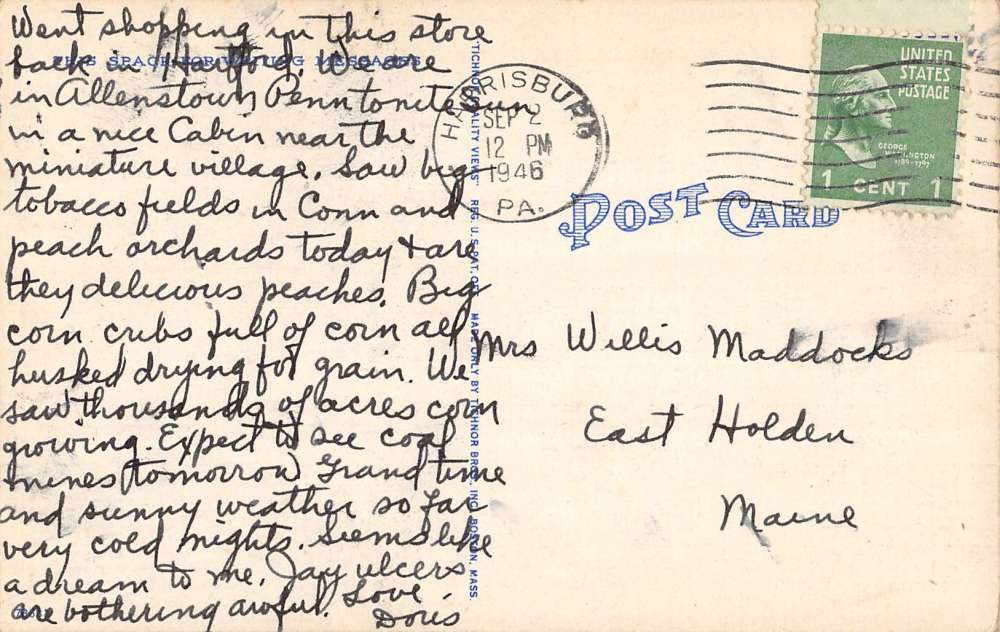 Went shopping in this store
back in Hartford. We are
in Allenstown Penn tonite
in a nice Cabin near the
miniature village. Saw big
tobacco fields in Conn and
peach orchards today + are
they delicious peaches. Big
corn cribs full of corn all
husked drying for grain. We
saw thousands of acres corn
growing. Expect to see coal
mines tomorrow Grand time
and sunny weather so far
very cold nights. Seems like
a dream to me. Jay ulcers
are bothering awful. Love
Doris
THIS SPACE FOR WRITING MESSAGES
"TICHNOR QUALITY VIEWS." REG. U. S. PAT. OFF. MADE ONLY BY TICHNOR BROS., INC., BOSTON, MASS.
HARRISBURG
SEP 2
12 PM
1946
PA.
UNITED
STATES
POSTAGE
GEORGE
WASHINGTON
1789-1797
1 CENT 1
POST CARD
Mrs Willis Maddocks
East Holden
Maine